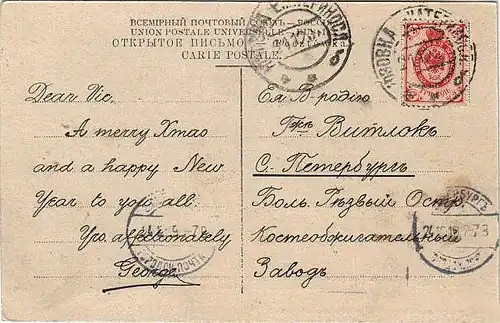 ВСЕМІРНЫЙ ПОЧТОВЫЙ СОЮЗЪ. РОССІЯ
UNION POSTALE UNIVERSELLE. RUSSIE
ОТКРЫТОЕ ПИСЬМО.
CARTE POSTALE.
Dear Vic,
A merry Xmas
and a happy New
Year to you all.
Yrs. affectionately
George
Ея В-родію
Г-жѣ Витлокъ
С. Петербургъ
Больш. Рѣзвый Остр.
Костеобжигательный
Заводъ